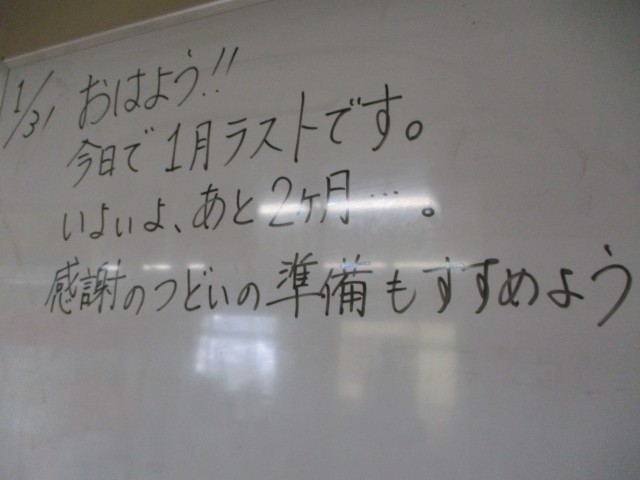 1/31 おはよう!!
今日で1月ラストです。
いよいよ、あと2ヶ月…。
感謝のつどいの準備もすすめよう